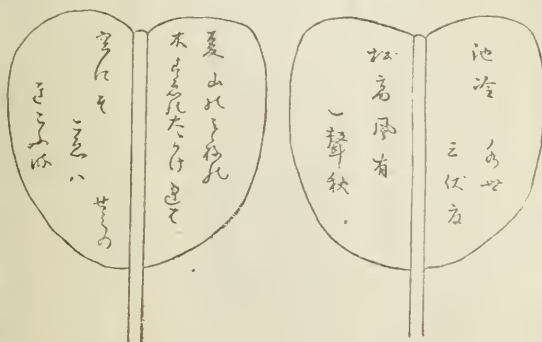 池冷 水無
三伏夏
松高風有
一聲秋
夏山のみねの
木すゑのたかけれは
空にそ せみの
こゑハ
きこゆる